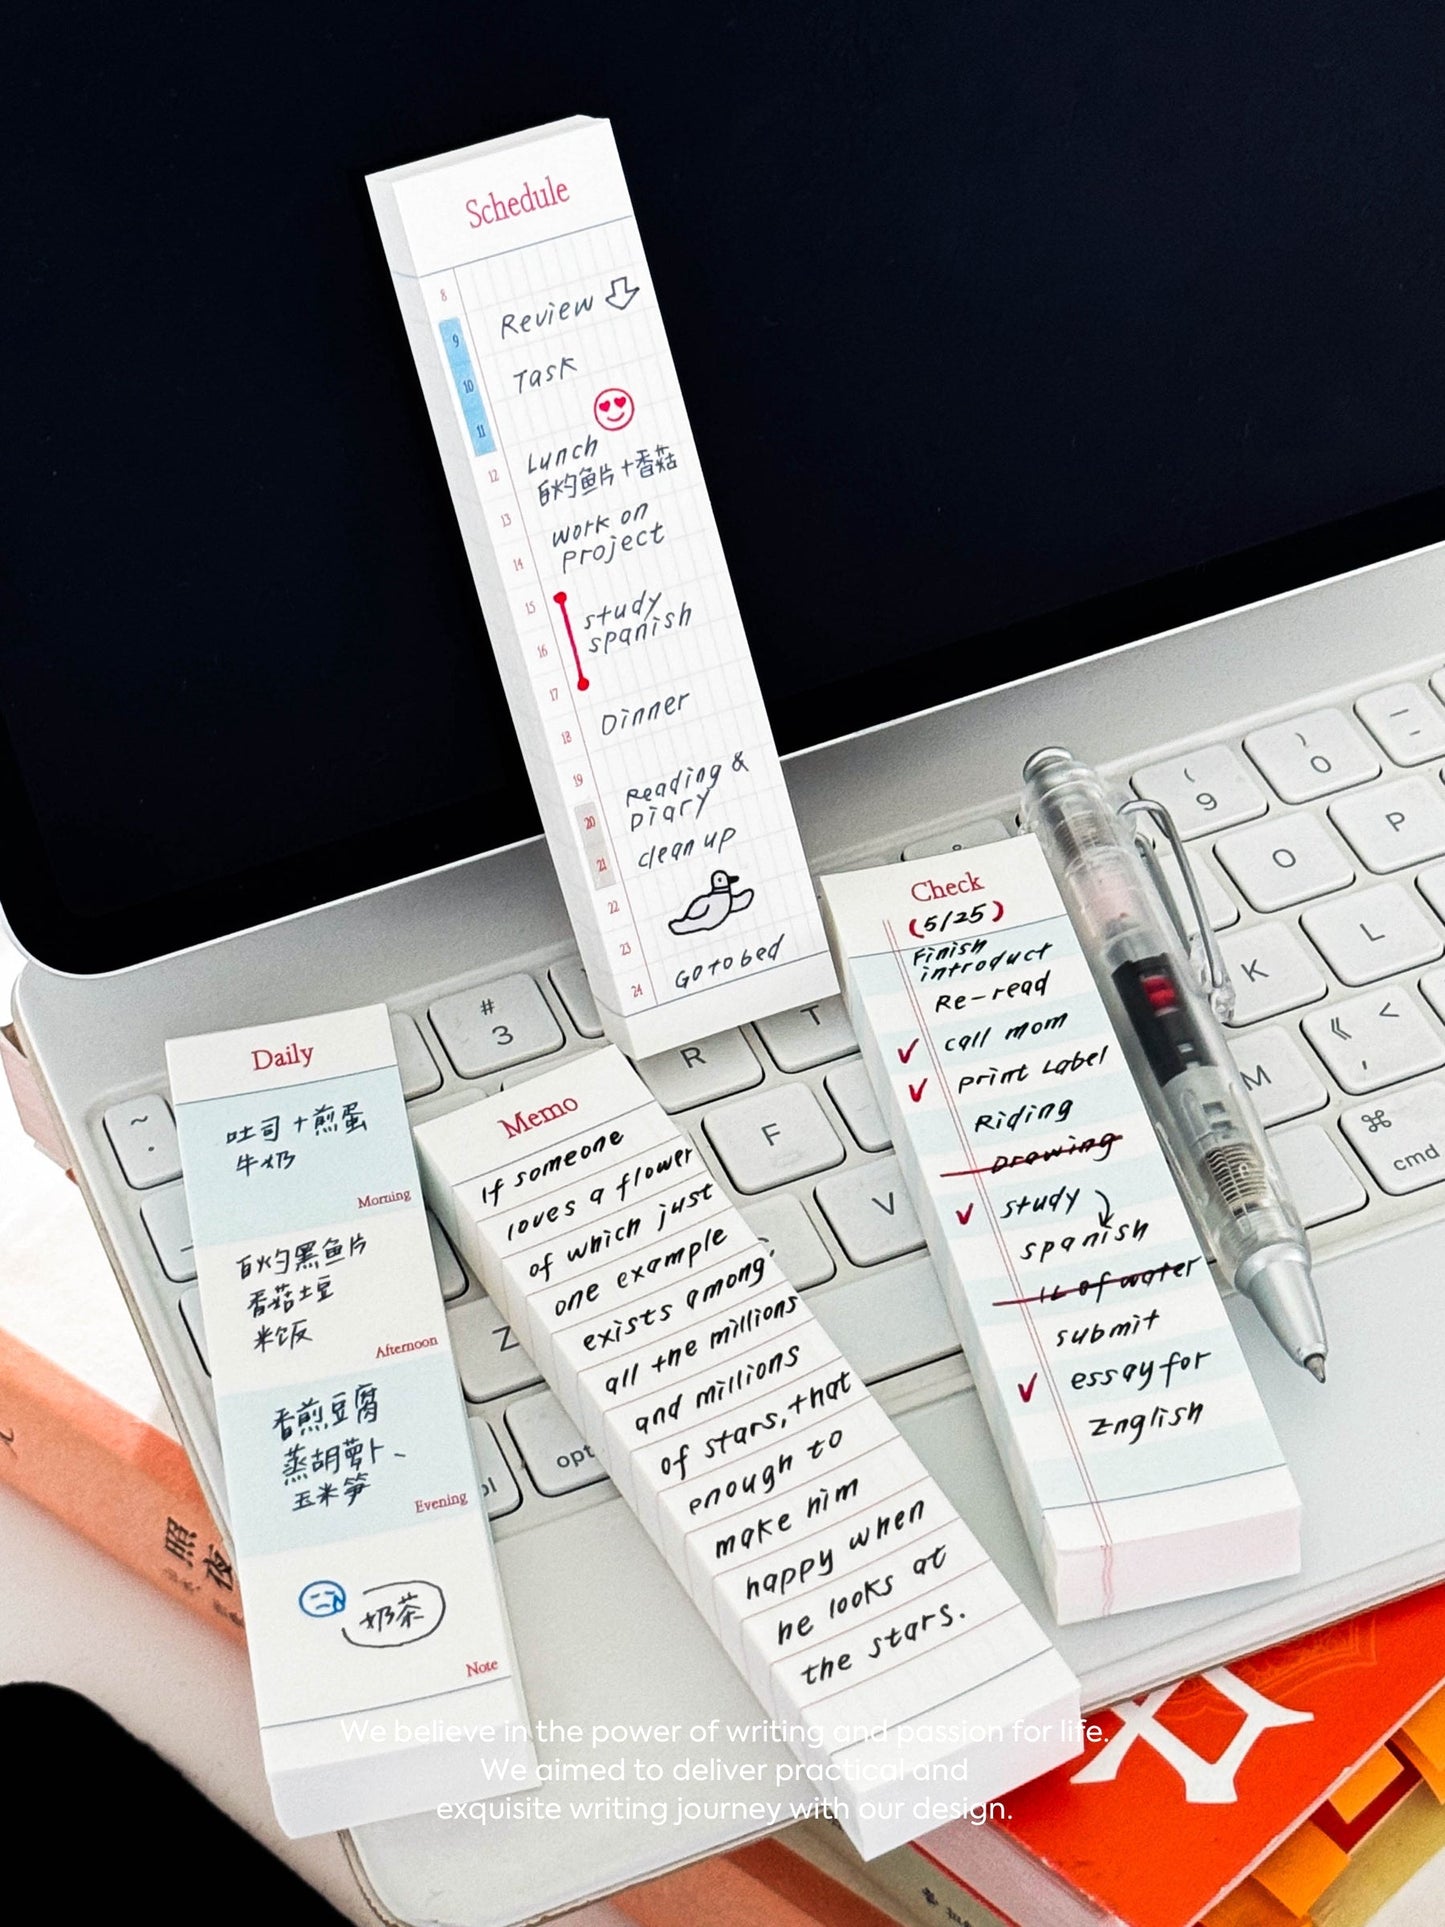 Schedule
8
Review
9
Task
10
11
Lunch
12
白灼鱼片+香菇
13
work on
project
14
15
study
spanish
16
17
Dinner
18
19
Reading &
Diary
20
clean up
21
22
23
Go to bed
24
Check
(5/25)
Finish
introduct
Re-read
call mom
print Label
Riding
Drawing
study
spanish
1L of water
submit
essay for
English
Daily
吐司+煎蛋
牛奶
Morning
白灼黑鱼片
香菇土豆
米饭
Afternoon
香煎豆腐
蒸胡萝卜、
玉米笋
Evening
奶茶
Note
Memo
If someone
loves a flower
of which just
one example
exists among
all the millions
and millions
of stars, that
enough to
make him
happy when
he looks at
the stars.
#
3
R
T
F
V
Z
opt
~
(
9
)
0
O
P
K
L
M
<
,
⌘
cmd
照
夜
We believe in the power of writing and passion for life.
We aimed to deliver practical and
exquisite writing journey with our design.